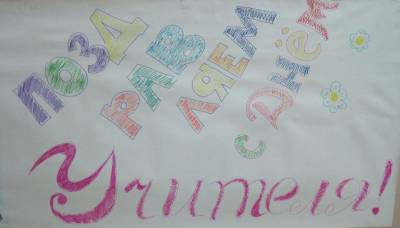 ПОЗД
РАВ
ЛЯЕМ
С ДНЁМ
Учителя!